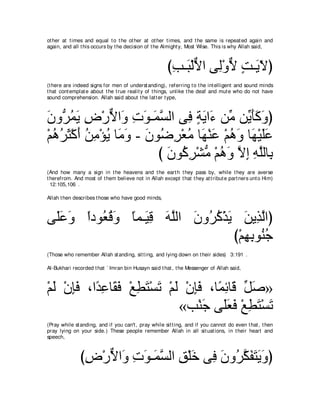 other at times and equal to the other at other times, and the same is repeated again and
again, and all this occurs by the decision of the Almighty, Most Wise. This is why Allah said,
(لاَيَـتٍ لاٌّوْلِى الاٌّلْبَـبِ)
(there are indeed signs for men of understanding), referring to the intelligent and sound minds
that contemplate about the true reality of things, unlike the deaf and mute who do not have
sound comprehension. Allah said about the latter type,
(وَكَأَيِّن مِّن ءَايَةٍ فِى السَّمَـوَتِ وَالاٌّرْضِ يَمُرُّونَ
عَلَيْهَا وَهُمْ عَنْهَا مُعْرِضُونَ - وَمَا يُؤْمِنُ أَكْثَرُهُمْ
بِاللَّهِ إِلاَّ وَهُمْ مُّشْرِكُونَ )
(And how many a sign in the heavens and the earth they pass by, while they are averse
therefrom. And most of them believe not in Allah except that they attribute partners unto Him)
12:105,106 .
Allah then describes those who have good minds,
(الَّذِينَ يَذْكُرُونَ اللَّهَ قِيَـماً وَقُعُوداً وَعَلَى
جُنُوبِهِمْ)
(Those who remember Allah standing, sitting, and lying down on their sides) 3:191 .
Al-Bukhari recorded that `Imran bin Husayn said that, the Messenger of Allah said,
«صَلِّ قَائِمًا، فَإِنْ لَمْ تَسْتَطِعْ فَقَاعِدًا، فَإِنْ لَمْ
تَسْتَطِعْ فَعَلَى جَنْبٍ»
(Pray while standing, and if you can't, pray while sitting, and if you cannot do even that, then
pray lying on your side.) These people remember Allah in all situations, in their heart and
speech,
(وَيَتَفَكَّرُونَ فِى خَلْقِ السَّمَـوَتِ وَالاٌّرْضِ)